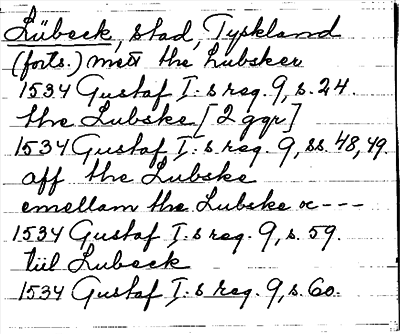 Lübeck, stad, Tyskland
(forts.) mett the Lubsker
1534 Gustaf I:s reg. 9, s. 24.
the Lubske [2 ggr]
1534 Gustaf I:s reg. 9, ss. 48, 49.
aff the Lubske
emellam the Lubske oc ---
1534 Gustaf I:s reg. 9, s. 59.
till Lubeck
1534 Gustaf I:s reg. 9, s. 60.